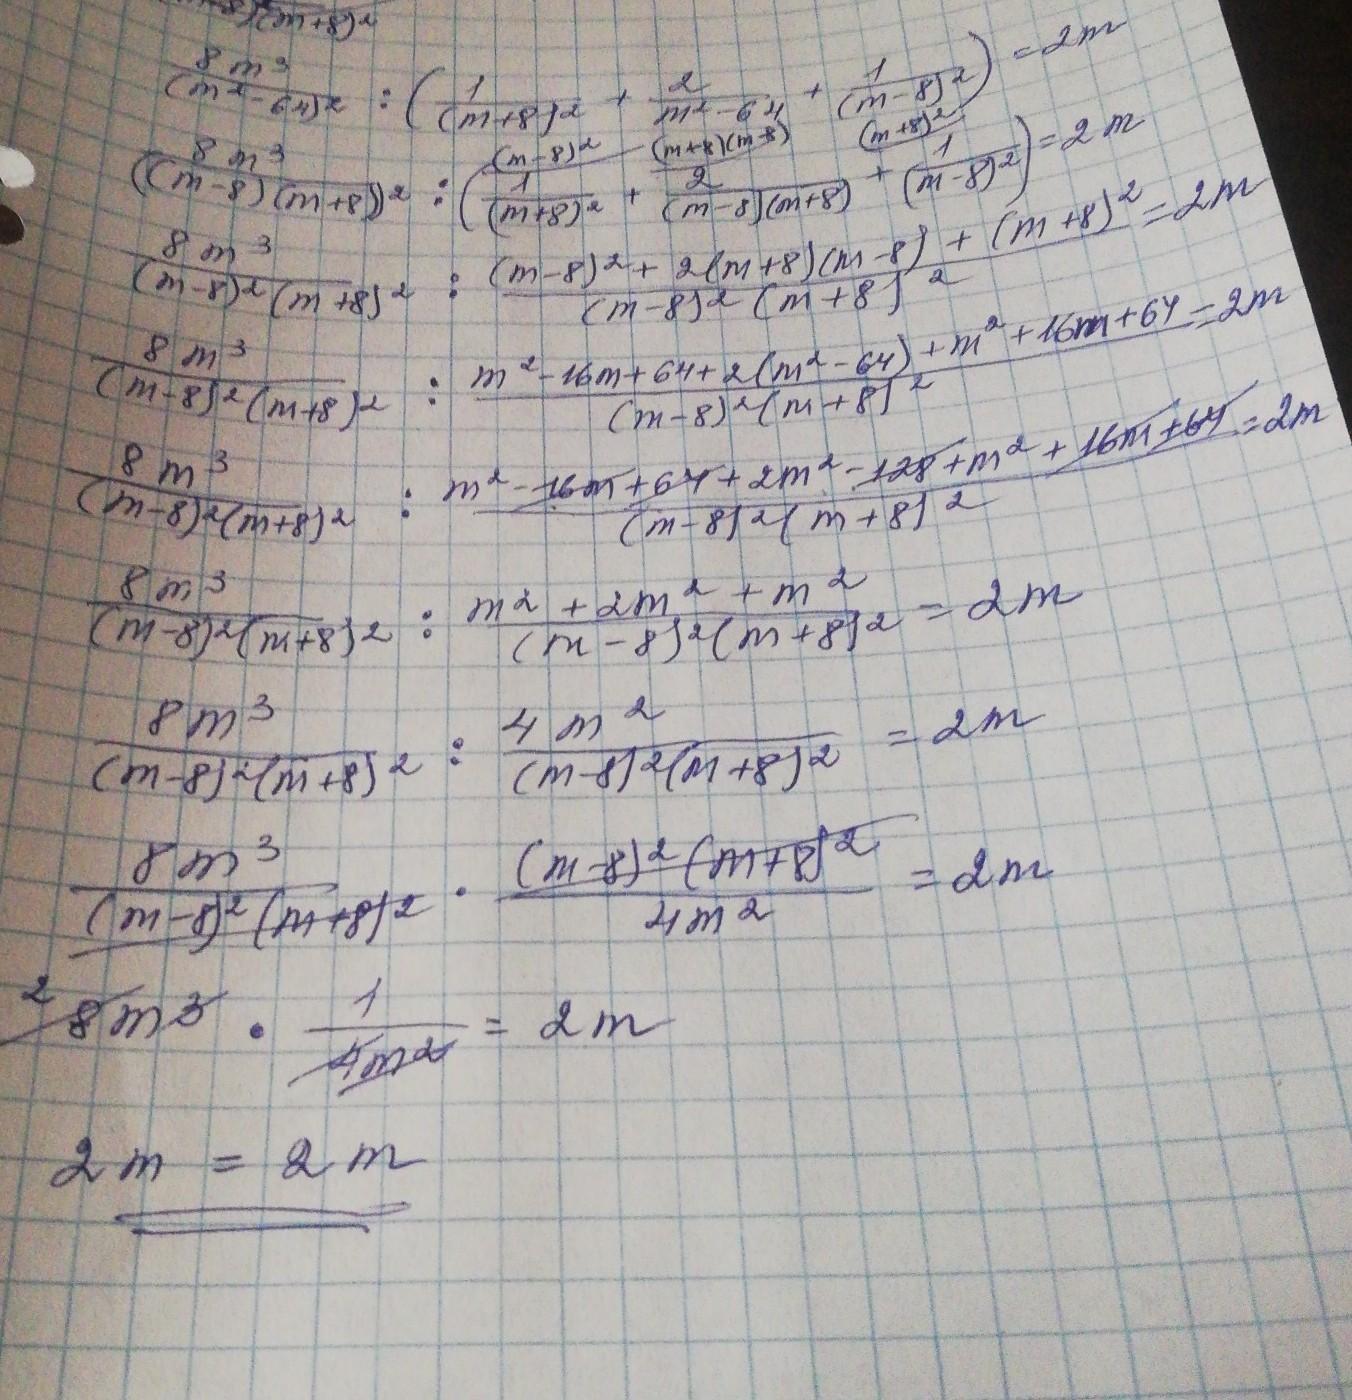 (m+8)²
8m³/(m²-64)² : (1/(m+8)² + 2/(m²-64) + 1/(m-8)²) = 2m
(m-8)² (m+8)(m-8) (m+8)²
8m³/((m-8)(m+8))² : (1/(m+8)² + 2/(m-8)(m+8) + 1/(m-8)²) = 2m
8m³/(m-8)²(m+8)² : ((m-8)² + 2(m+8)(m-8) + (m+8)²)/(m-8)²(m+8)² = 2m
8m³/(m-8)²(m+8)² : (m²-16m+64+2(m²-64)+m²+16m+64)/(m-8)²(m+8)² = 2m
8m³/(m-8)²(m+8)² : (m²-16m+64+2m²-128+m²+16m+64)/(m-8)²(m+8)² = 2m
8m³/(m-8)²(m+8)² : (m²+2m²+m²)/(m-8)²(m+8)² = 2m
8m³/(m-8)²(m+8)² : 4m²/(m-8)²(m+8)² = 2m
8m³/(m-8)²(m+8)² · (m-8)²(m+8)²/4m² = 2m
2 8m³ · 1/4m² = 2m
2m = 2m